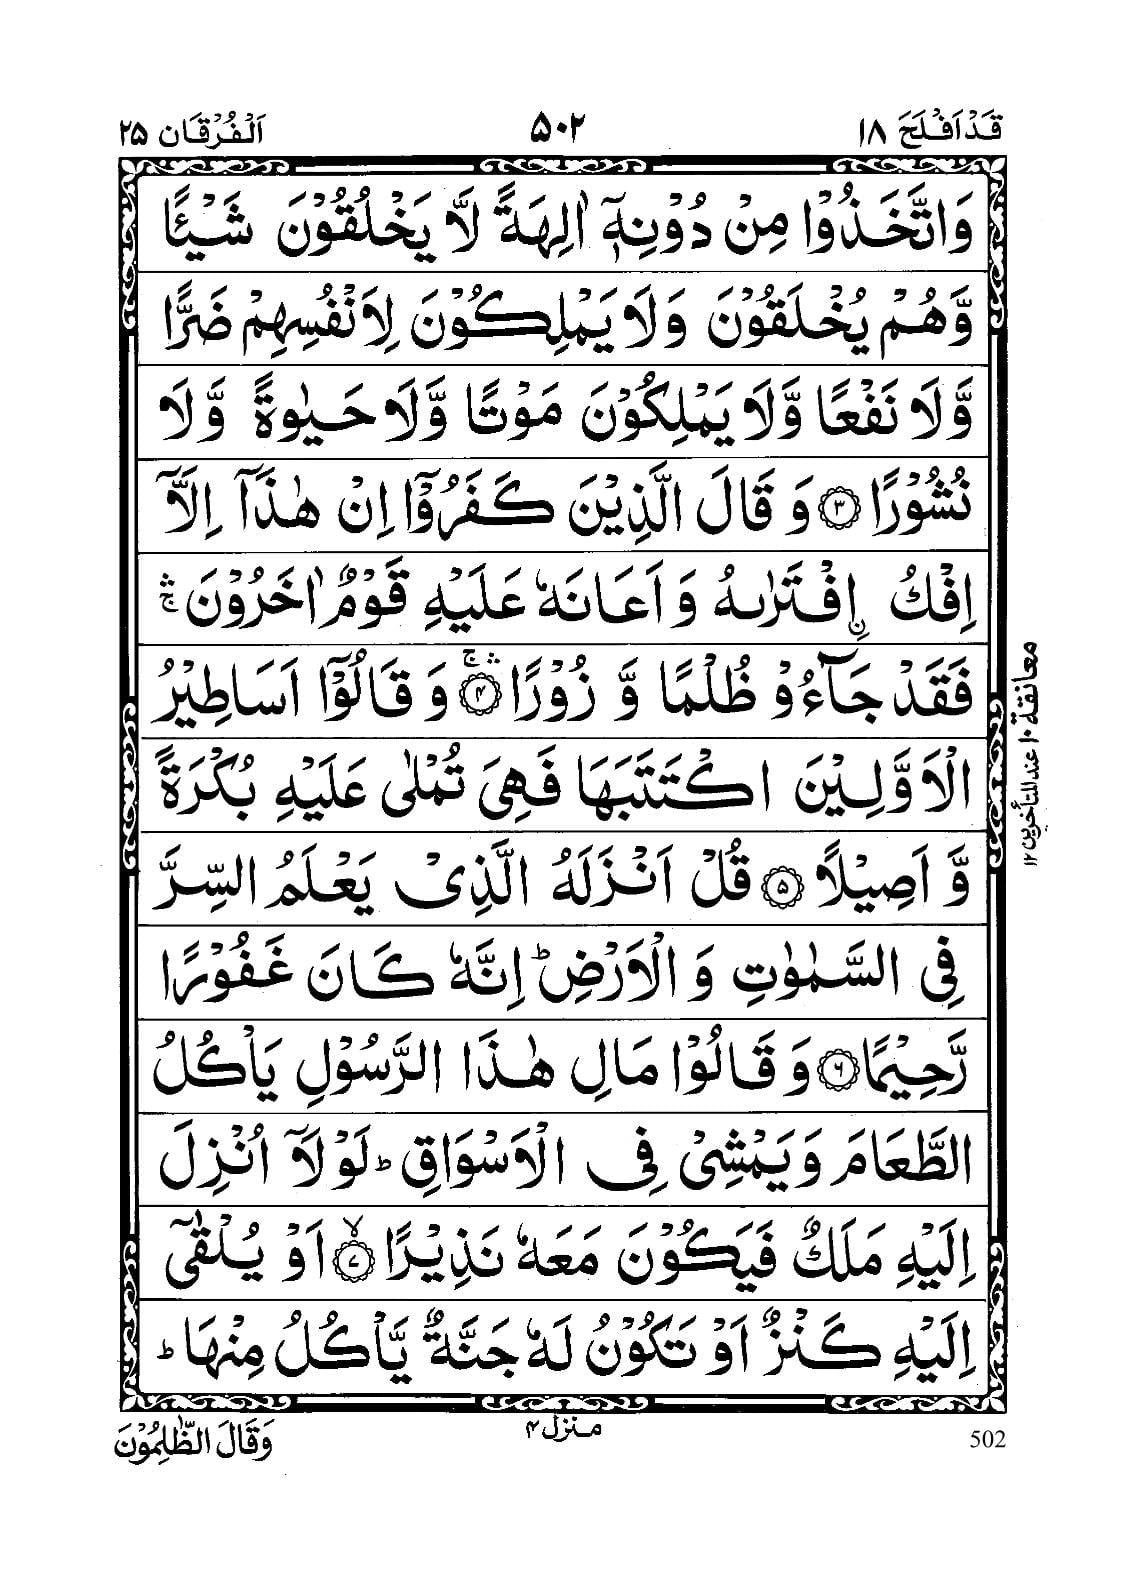 قَدْ اَفْلَحَ ١٨
٥٠٢
اَلْفُرْقَان ٢٥
وَاتَّخَذُوْا مِنْ دُوْنِهٖۤ اٰلِهَةً لَّا يَخْلُقُوْنَ شَيْـًٔا
وَّهُمْ يُخْلَقُوْنَ وَلَا يَمْلِكُوْنَ لِاَنْفُسِهِمْ ضَرًّا
وَّلَا نَفْعًا وَّلَا يَمْلِكُوْنَ مَوْتًا وَّلَا حَيٰوةً وَّلَا
نُشُوْرًا ﴿٣﴾ وَقَالَ الَّذِيْنَ كَفَرُوْۤا اِنْ هٰذَاۤ اِلَّاۤ
اِفْكُ ۨ افْتَرٰىهُ وَاَعَانَهٗ عَلَيْهِ قَوْمٌ اٰخَرُوْنَ ۛۚ
فَقَدْ جَآءُوْ ظُلْمًا وَّ زُوْرًا ﴿٤﴾ ۛۚ وَقَالُوْۤا اَسَاطِيْرُ
الْاَوَّلِيْنَ اكْتَتَبَهَا فَهِىَ تُمْلٰى عَلَيْهِ بُكْرَةً
وَّ اَصِيْلًا ﴿٥﴾ قُلْ اَنْزَلَهُ الَّذِىْ يَعْلَمُ السِّرَّ
فِى السَّمٰوٰتِ وَ الْاَرْضِ ؕ اِنَّهٗ كَانَ غَفُوْرًا
رَّحِيْمًا ﴿٦﴾ وَقَالُوْا مَالِ هٰذَا الرَّسُوْلِ يَاْكُلُ
الطَّعَامَ وَيَمْشِىْ فِى الْاَسْوَاقِ ؕ لَوْلَاۤ اُنْزِلَ
اِلَيْهِ مَلَكٌ فَيَكُوْنَ مَعَهٗ نَذِيْرًا ﴿٧﴾ ۙ اَوْ يُلْقٰۤى
اِلَيْهِ كَنْزٌ اَوْ تَكُوْنُ لَهٗ جَنَّةٌ يَّاْكُلُ مِنْهَا ؕ
معانقة ١٠ عند المتأخرين ١٢
منزل ٤
وَقَالَ الظّٰلِمُوْنَ
502